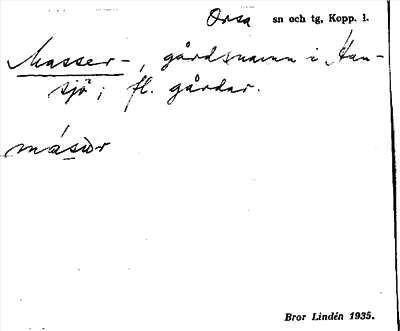 Orsa sn och tg, Kopp. l.
Masser-, gårdsnamn i Han-
sjö; fl. gårdar.
másùr
Bror Lindén 1935.